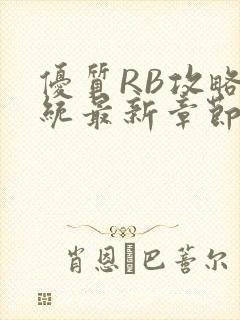 優質RB攻略
統最新章節
肖恩·巴蒈尔